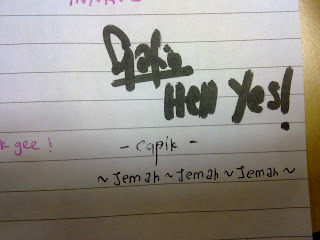 Hell Yes!
k gee!
- capik -
~ Jemah ~ Jemah ~ Jemah ~